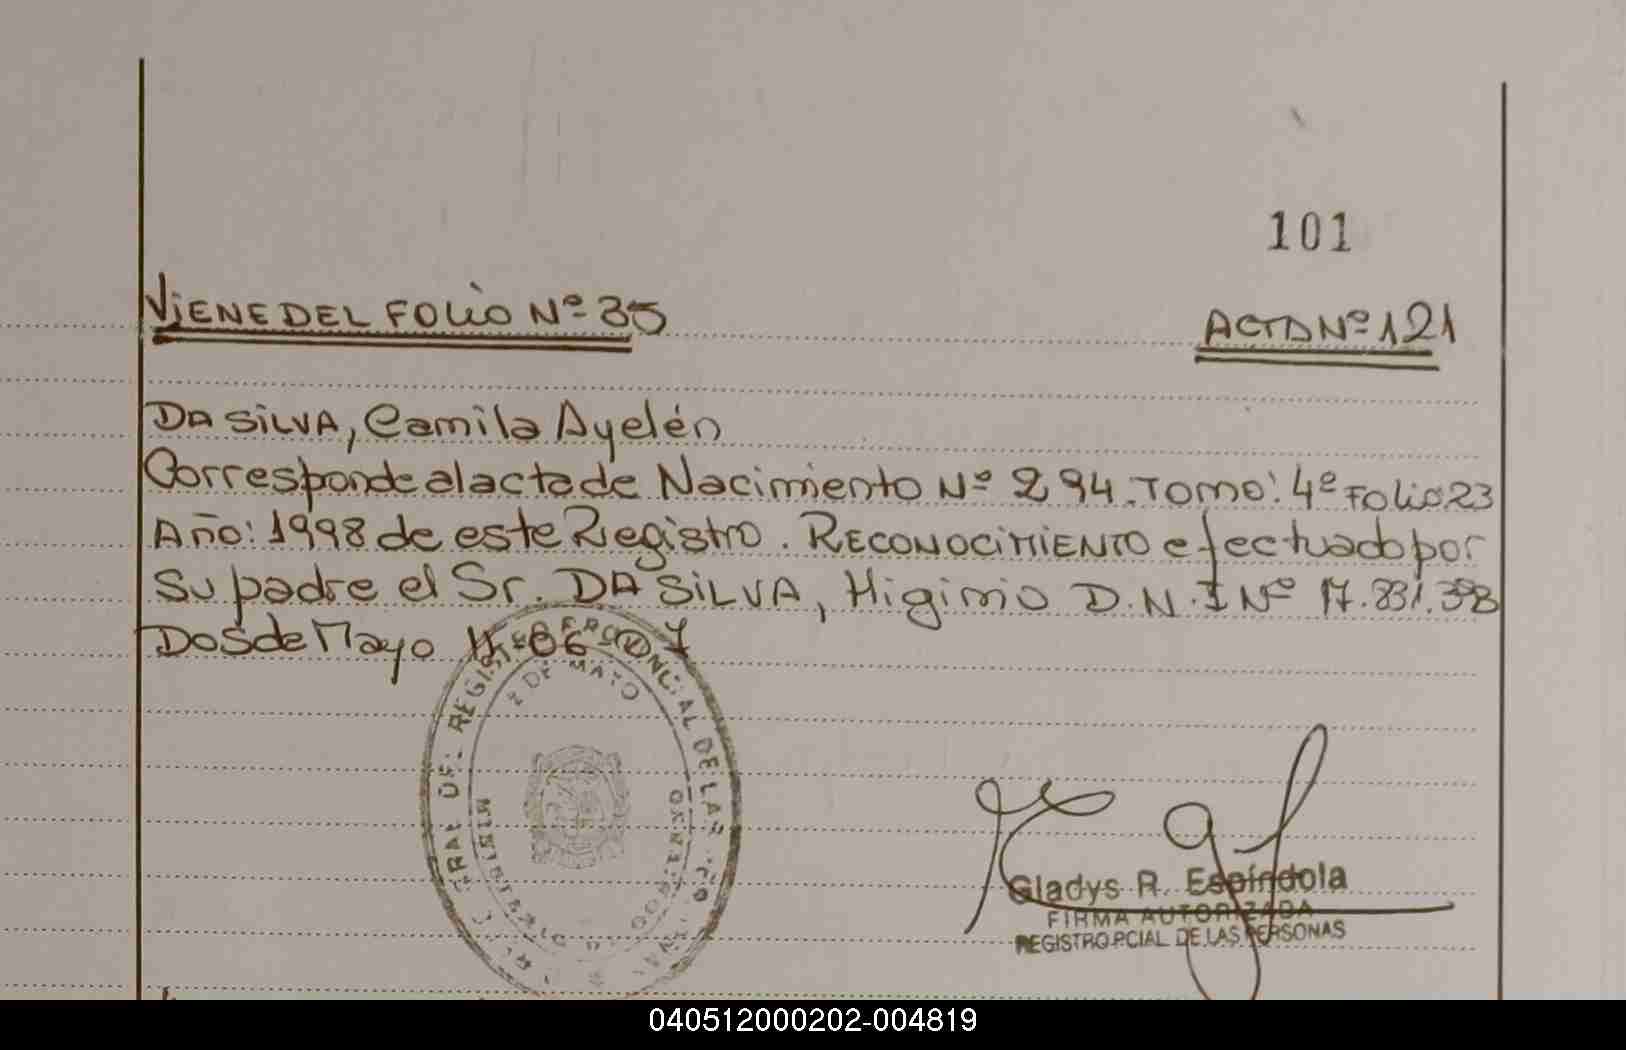 101
VIENE DEL FOLIO Nº 35
ACTA Nº 121
DA SILVA, Camila Ayelén
Corresponde al acta de Nacimiento Nº 294. Tomo: 4º Folio 23
Año: 1998 de este Registro. RECONOCIMIENTO efectuado por
Su padre el Sr. DA SILVA, Higinio D.N.I Nº 17.831.398
Dos de Mayo
2 DE MAYO
Gladys R. Espíndola
FIRMA AUTORIZADA
REGISTRO PCIAL DE LAS PERSONAS
040512000202-004819